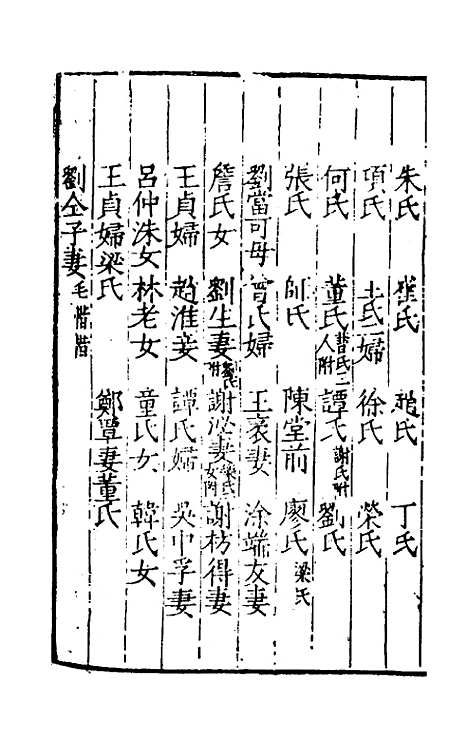 朱氏 崔氏 趙氏 丁氏
項氏 王氏二婦 徐氏 榮氏
何氏 董氏 人附 譚氏 謝氏附 劉氏
張氏 師氏 陳堂前 廖氏 梁氏
劉當可母 曾氏婦 王袤妻 涂端友妻
詹氏女 劉生妻 謝泌妻 謝枋得妻
王貞婦 趙淮妾 譚氏婦 吳中孚妻
呂仲洙女 林老女 童氏女 韓氏女
王貞婦梁氏 鄭覃妻董氏
劉仝子妻 毛惜惜